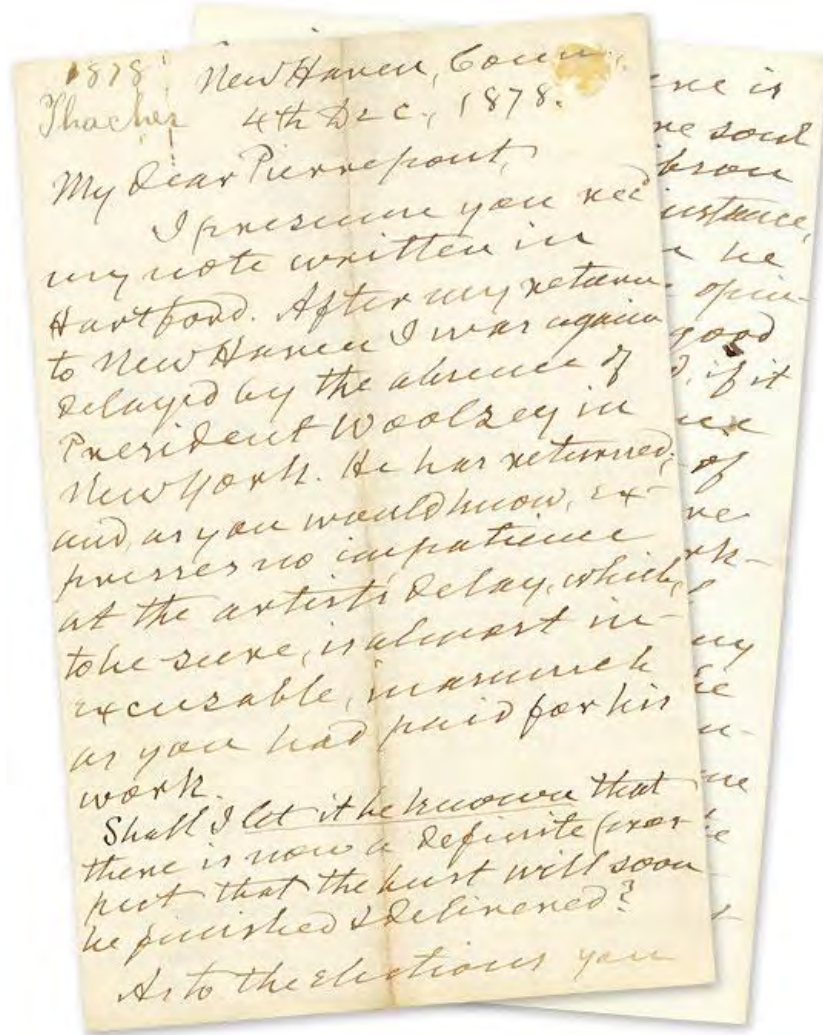 1878
Thacher
New Haven, Conn.,
4th Dec., 1878.
My dear Pierrepont,
I presume you rec'd
my note written in
Hartford. After my return
to New Haven I was again
delayed by the absence of
President Woolsey in
New York. He has returned,
and, as you would know, ex-
presses no impatience
at the artist's delay, which,
to be sure, is almost in-
excusable, inasmuch
as you had paid for his
work.
Shall I let it be known that
there is now a definite pros-
pect that the bust will soon
be finished & delivered?
As to the elections you
ere is
soul
instance,
he
opin-
good
if it
of